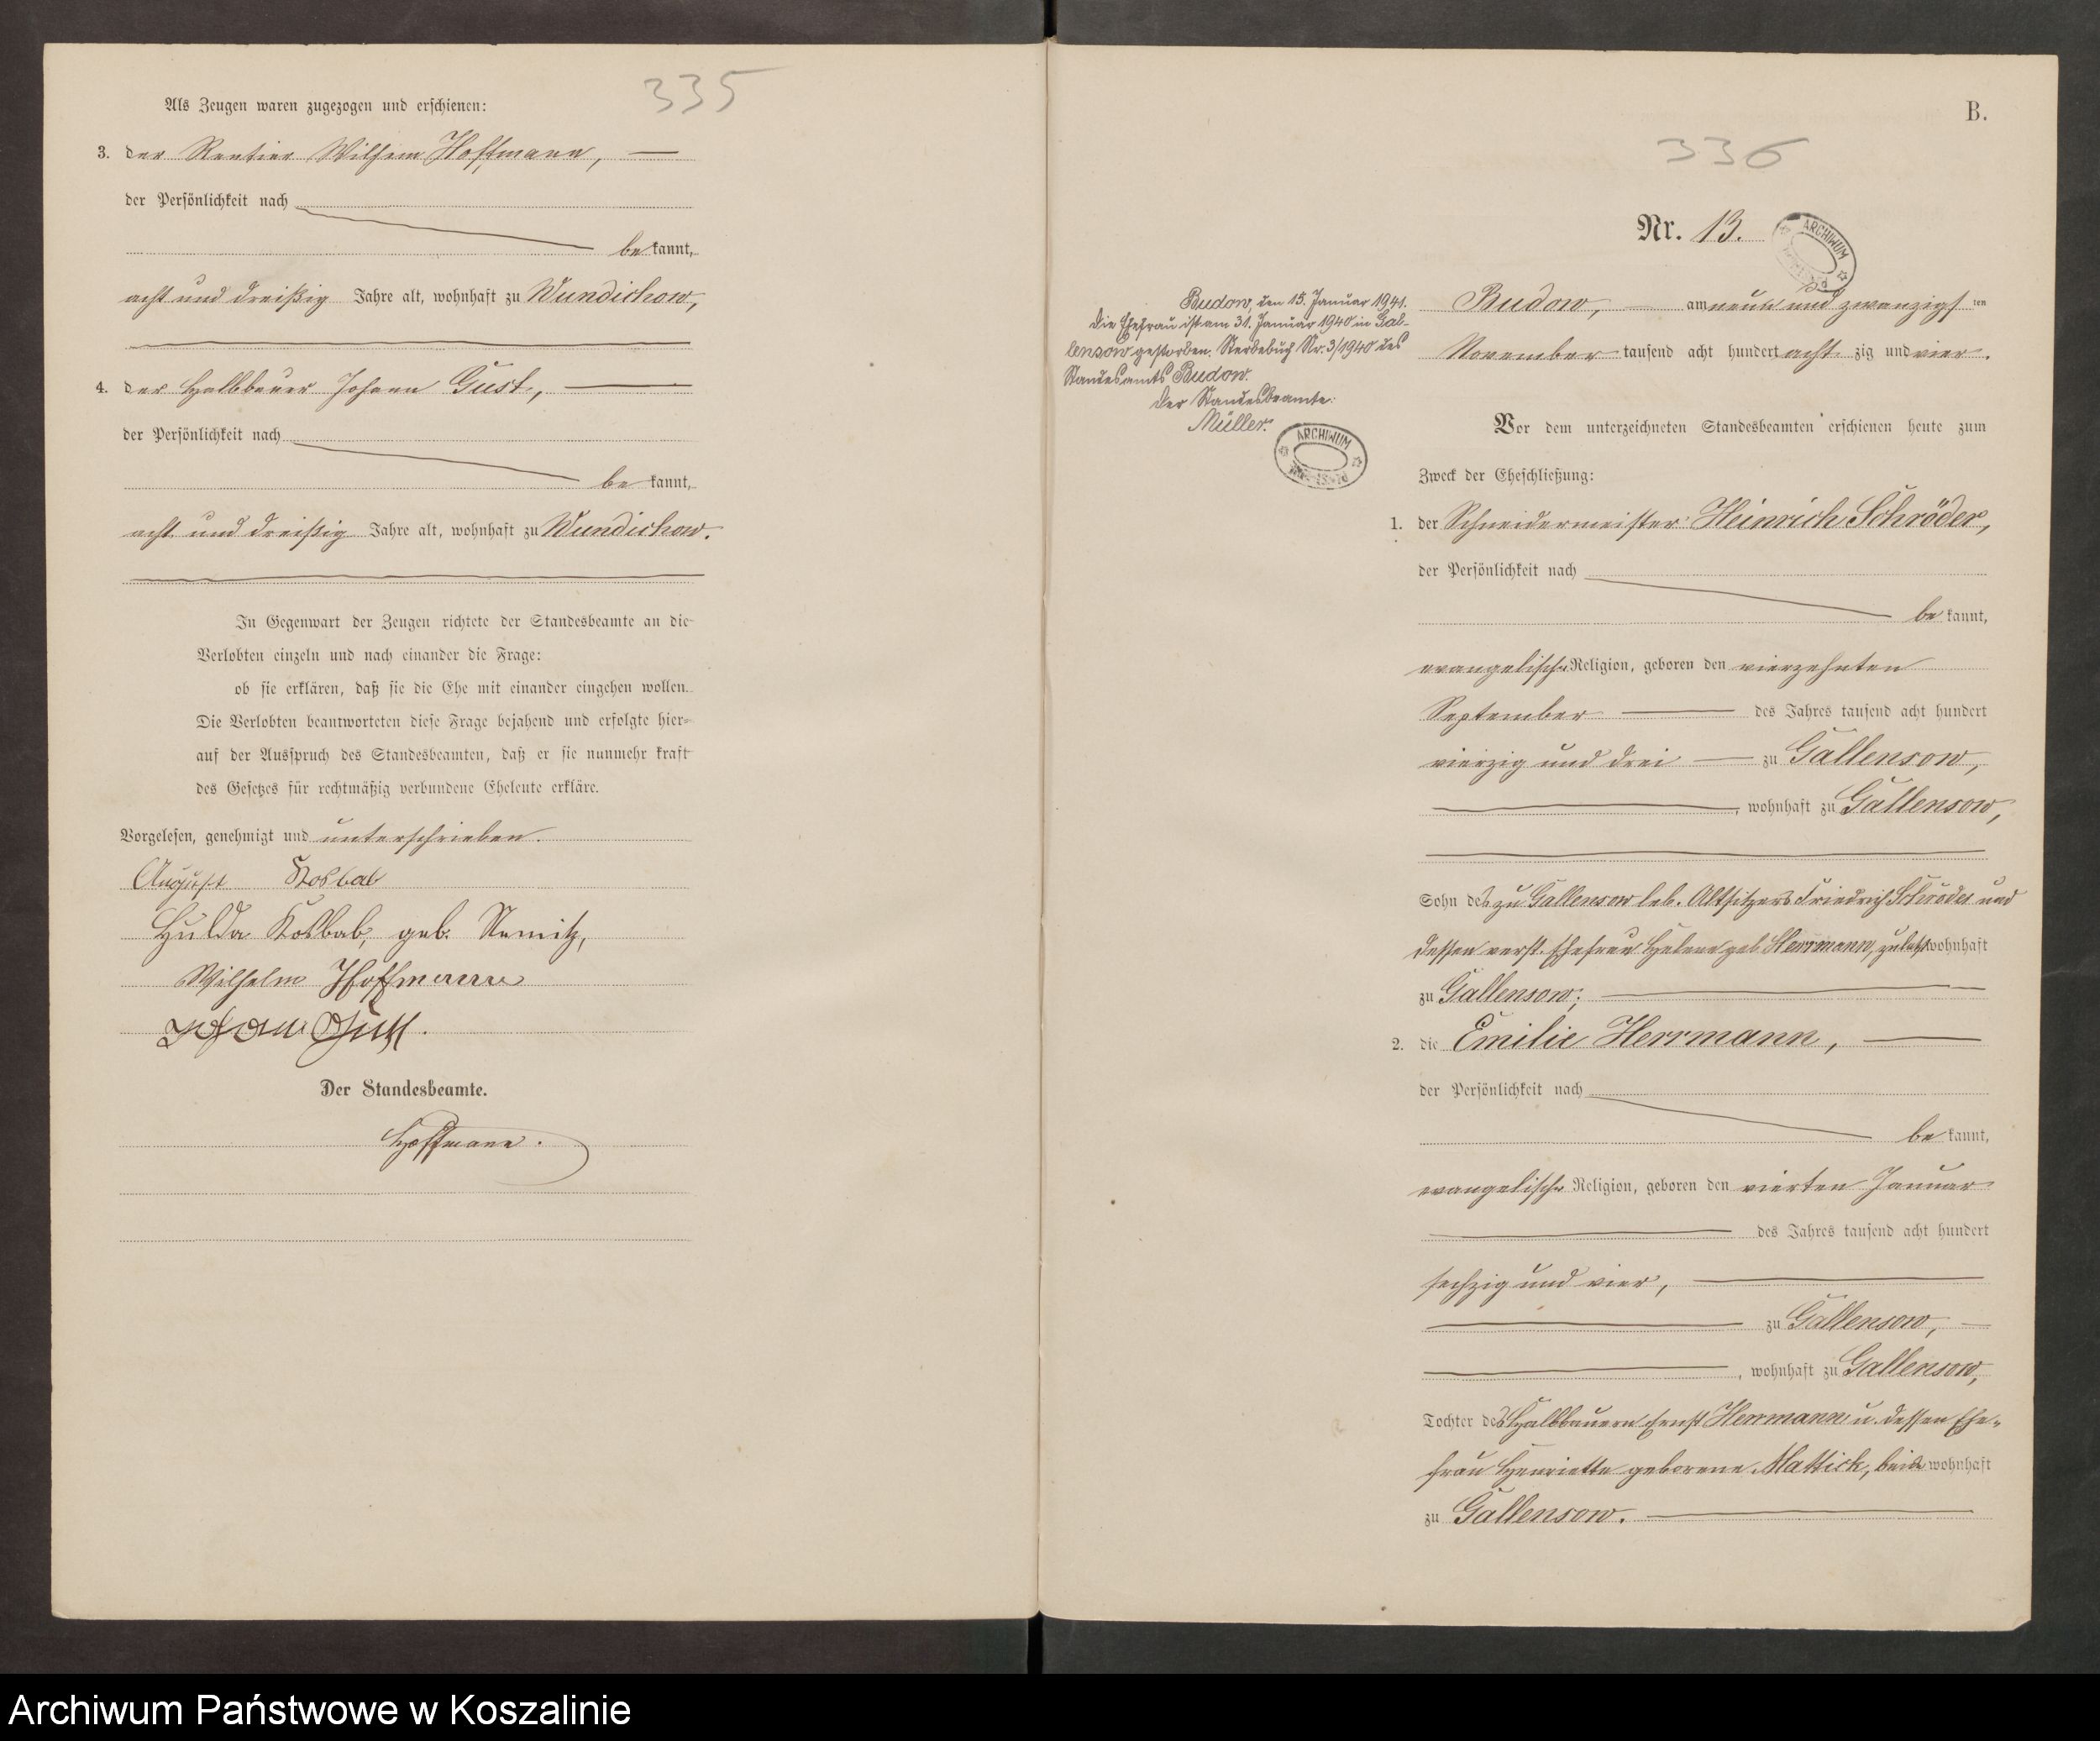 335
Als Zeugen waren zugezogen und erschienen:
3. der Rentier Wilhem Hoffmann,
der Persönlichkeit nach
be kannt,
acht und dreißig Jahre alt, wohnhaft zu Wundichow,
4. der Halbbauer Johann Gust,
der Persönlichkeit nach
be kannt,
acht und dreißig Jahre alt, wohnhaft zu Wundichow.
In Gegenwart der Zeugen richtete der Standesbeamte an die
Verlobten einzeln und nach einander die Frage:
ob sie erklären, daß sie die Ehe mit einander eingehen wollen.
Die Verlobten beantworteten diese Frage bejahend und erfolgte hier-
auf der Ausspruch des Standesbeamten, daß er sie nunmehr kraft
des Gesetzes für rechtmäßig verbundene Eheleute erkläre.
Vorgelesen, genehmigt und unterschrieben.
August Kosbab
Hulda Kosbab, geb. Nemitz,
Wilhelm Hoffmann
Johann Gust.
Der Standesbeamte.
Hoffmann.
B.
336
Nr. 13.
ARCHIWUM
Budow, am neun und zwanzigs ten
November tausend acht hundert acht zig und vier.
Budow, den 15. Januar 1941.
Die Ehefrau ist am 31. Januar 1940 in Gal-
lensow gestorben. Sterbebuch Nr. 3/1940 des
Standesamts Budow.
Der Standesbeamte:
Müller.
ARCHIWUM
Vor dem unterzeichneten Standesbeamten erschienen heute zum
Zweck der Eheschließung:
1. der Schneidermeister Heinrich Schröder,
der Persönlichkeit nach
be kannt,
evangelischer Religion, geboren den vierzehnten
September des Jahres tausend acht hundert
vierzig und drei zu Gallensow,
, wohnhaft zu Gallensow,
Sohn des zu Gallensow leb. Altsitzers Friedrich Schröder und
dessen verst. Ehefrau Helene geb. Herrmann, zuletzt wohnhaft
zu Gallensow;
2. die Emilie Herrmann,
der Persönlichkeit nach
be kannt,
evangelischer Religion, geboren den vierten Januar
des Jahres tausend acht hundert
sechzig und vier,
zu Gallensow,
, wohnhaft zu Gallensow,
Tochter des Halbbauern Ernst Herrmann u. dessen Ehe-
frau Henriette geborene Mattick, beide wohnhaft
zu Gallensow.
Archiwum Państwowe w Koszalinie